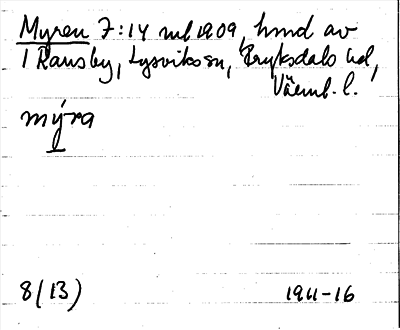 Myren 7:14 url 1909, hmd av
1 Ransby, Lysviks sn, Fryksdals hd,
Värml. l.
mýra
8(13)
1911-16